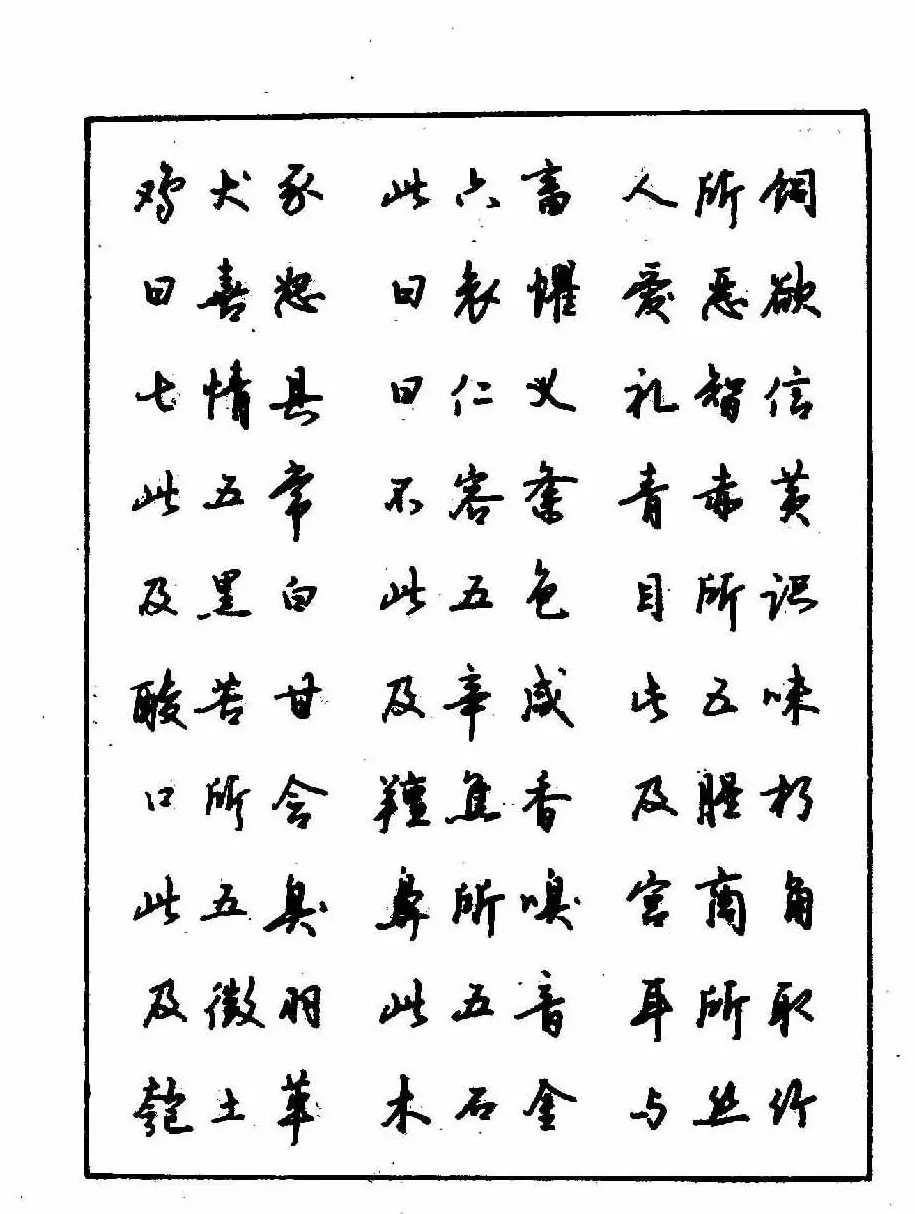 鸡犬豕 此六畜 人所饲
曰喜怒 曰哀惧 爱恶欲
七情具 曰仁义 礼智信
此五常 不容紊 青赤黄
及黑白 此五色 目所识
酸苦甘 及辛咸 此五味
口所含 膻焦香 及腥朽
此五臭 鼻所嗅 宫商角
及徵羽 此五音 耳所取
匏土革 木石金 与丝竹